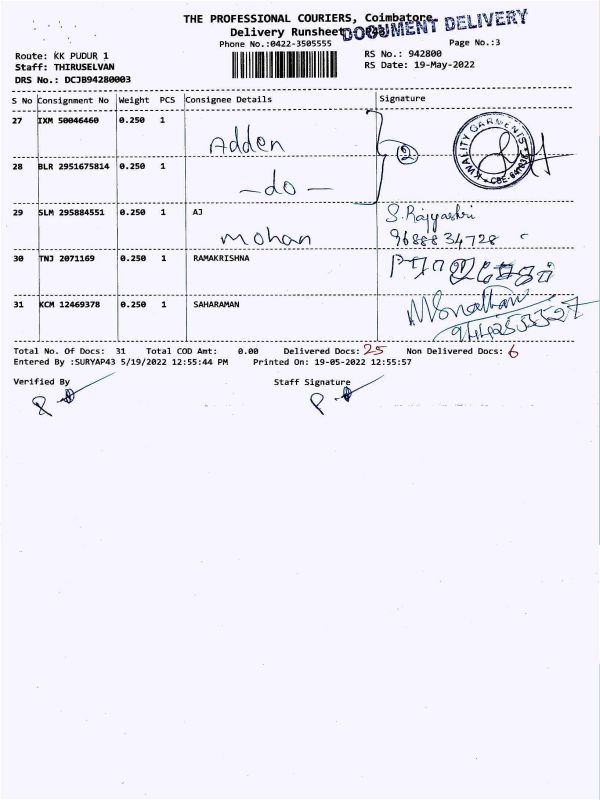 THE PROFESSIONAL COURIERS, Coimbatore
DOCUMENT DELIVERY
Delivery Runsheet
Phone No.:0422-3505555
Page No.:3
Route: KK PUDUR 1
RS No.: 942800
Staff: THIRUSELVAN
RS Date: 19-May-2022
DRS No.: DCJB94280003
S No Consignment No Weight PCS Consignee Details Signature
27 IXM 50046460 0.250 1
Adden
2
KWALITY GARMENTS
28 BLR 2951675814 0.250 1
- do -
29 SLM 295884551 0.250 1 AJ
Mohan
S. Rajyashri
96888 34728
30 TNJ 2071169 0.250 1 RAMAKRISHNA
31 KCM 12469378 0.250 1 SAHARAMAN
Total No. Of Docs: 31 Total COD Amt: 0.00 Delivered Docs: 25 Non Delivered Docs: 6
Entered By :SURYAP43 5/19/2022 12:55:44 PM Printed On: 19-05-2022 12:55:57
Verified By Staff Signature